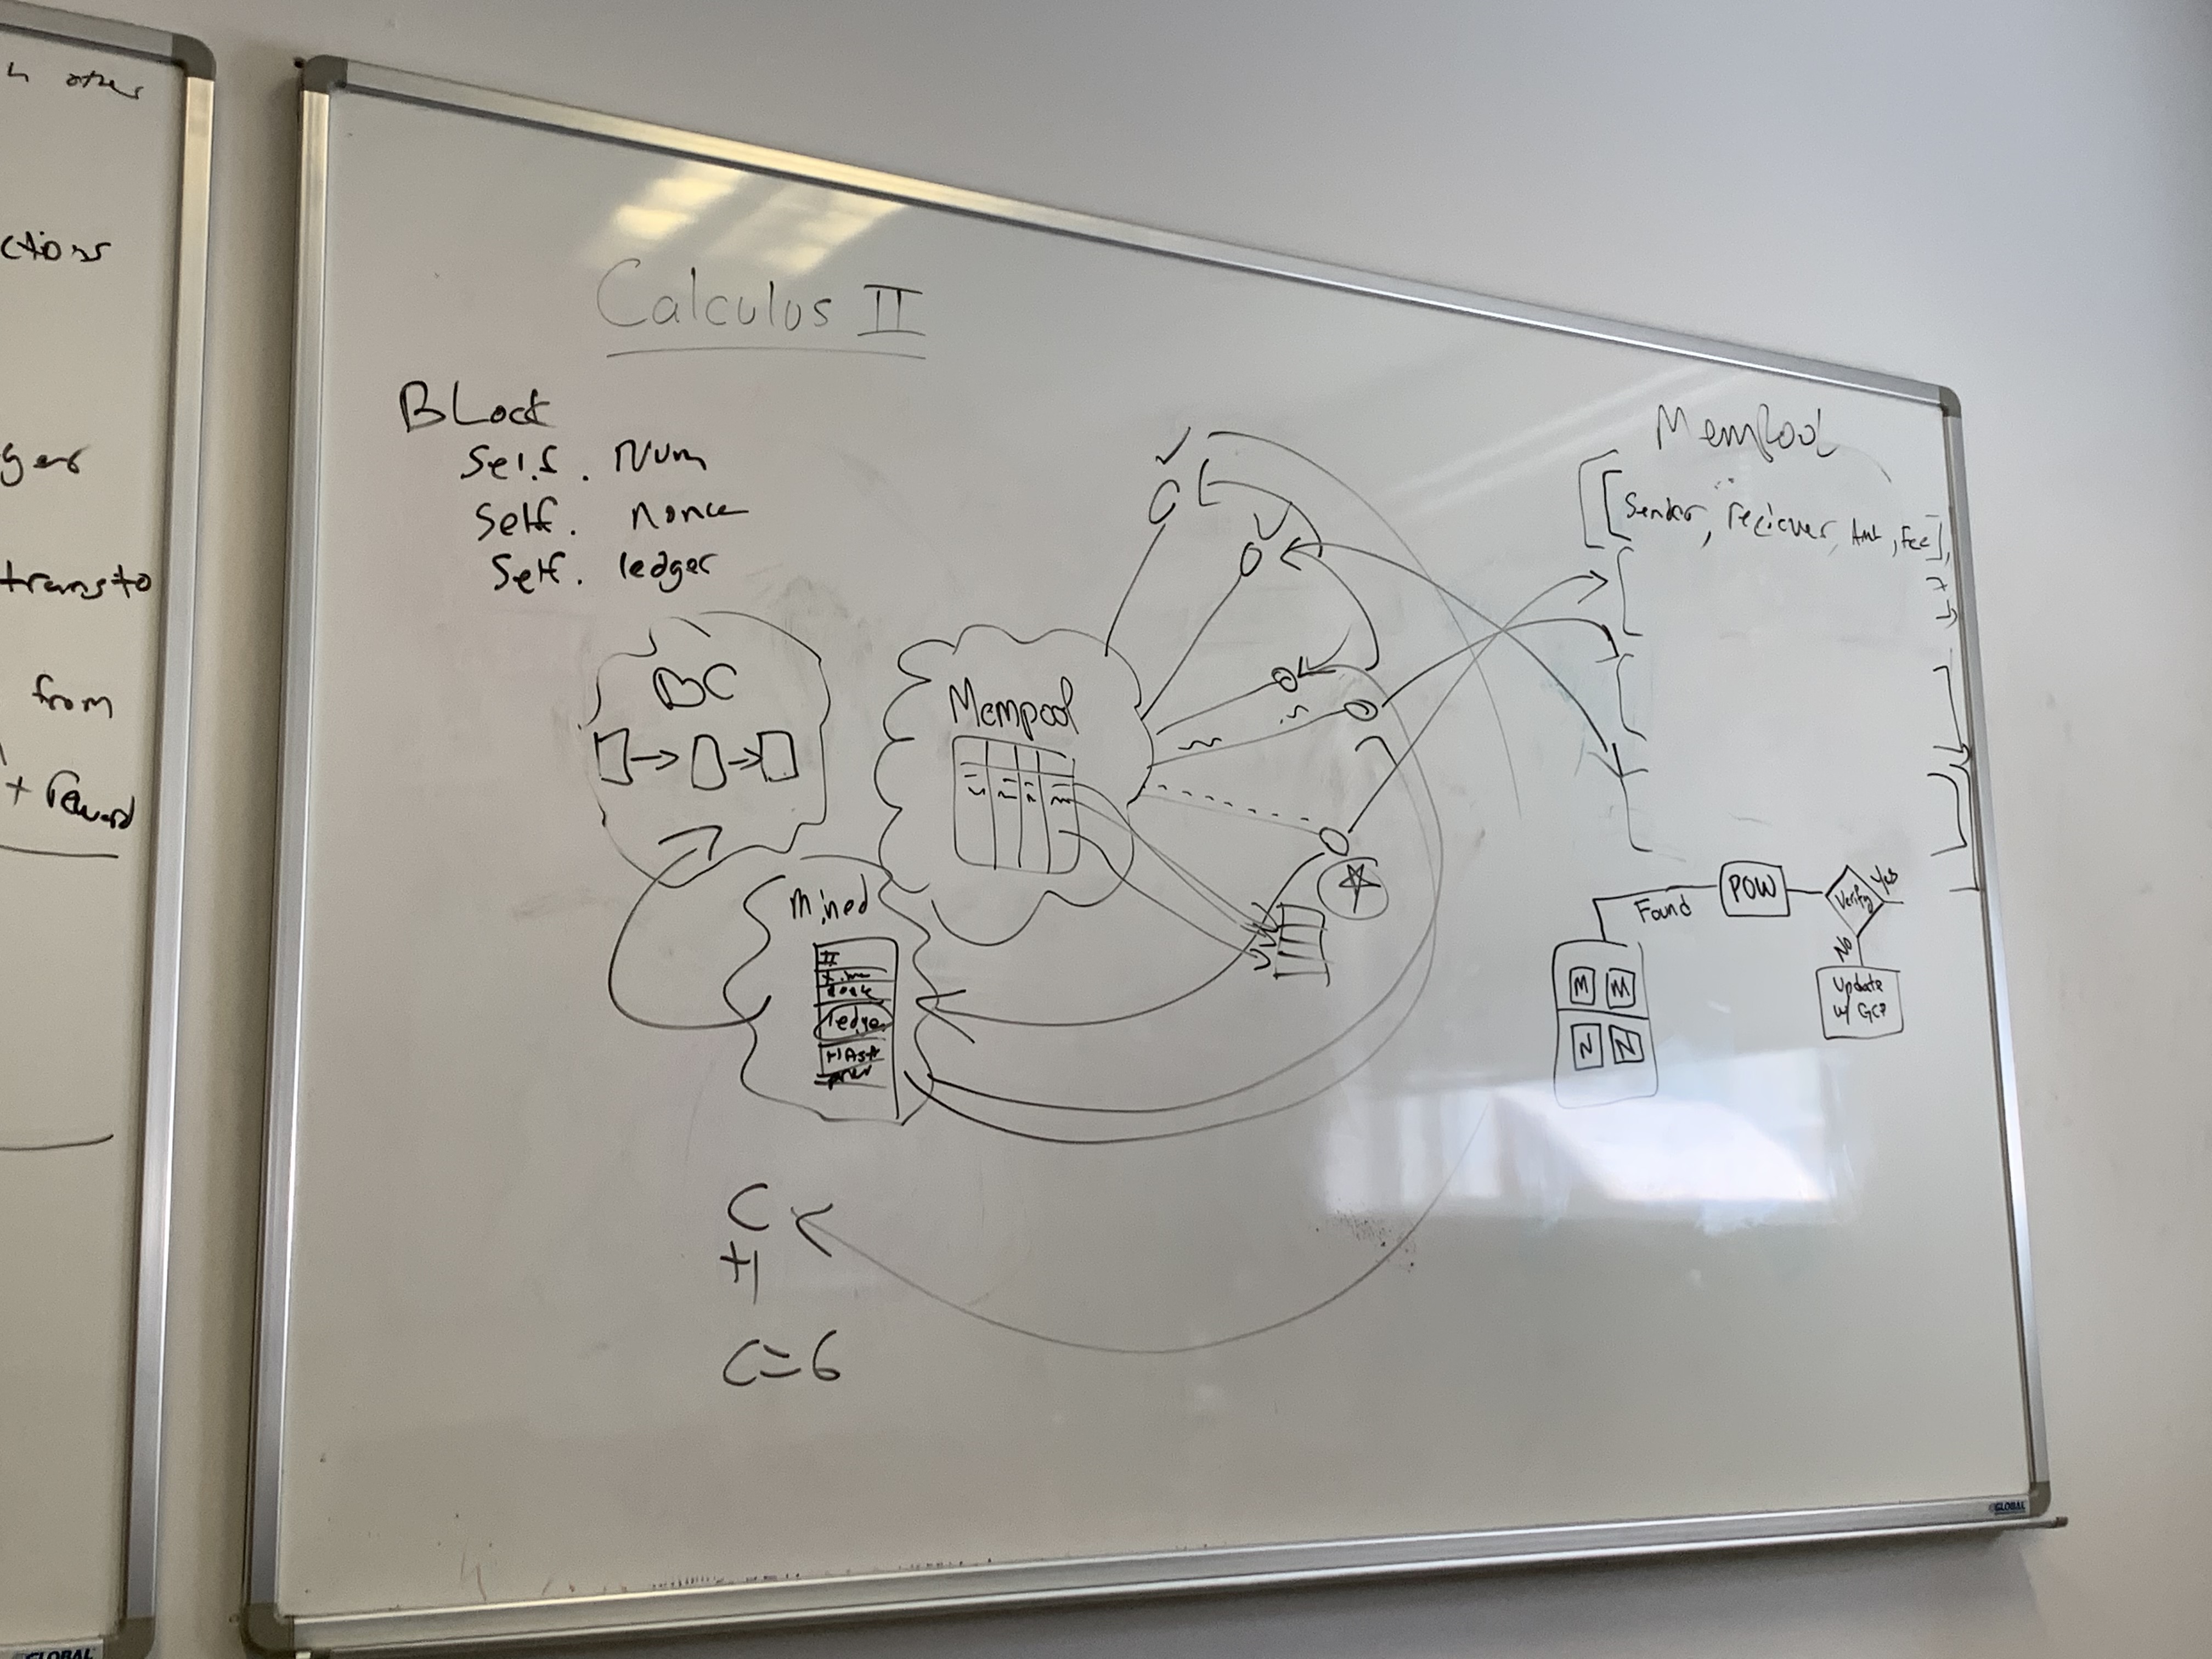 other
ctions
ger
transto
from
+ reward
GLOBAL
Calculus II
BLock
Self. Num
Self. nonce
Self. ledger
BC
Mempool
Mined
#
time
ledger
HASH
prev
C
+1
C=6
MemPool
[[Sender, reciever, Amt, Fee],
POW
Found
Verify
Yes
No
Update
w/ GCP
M M
N N
GLOBAL